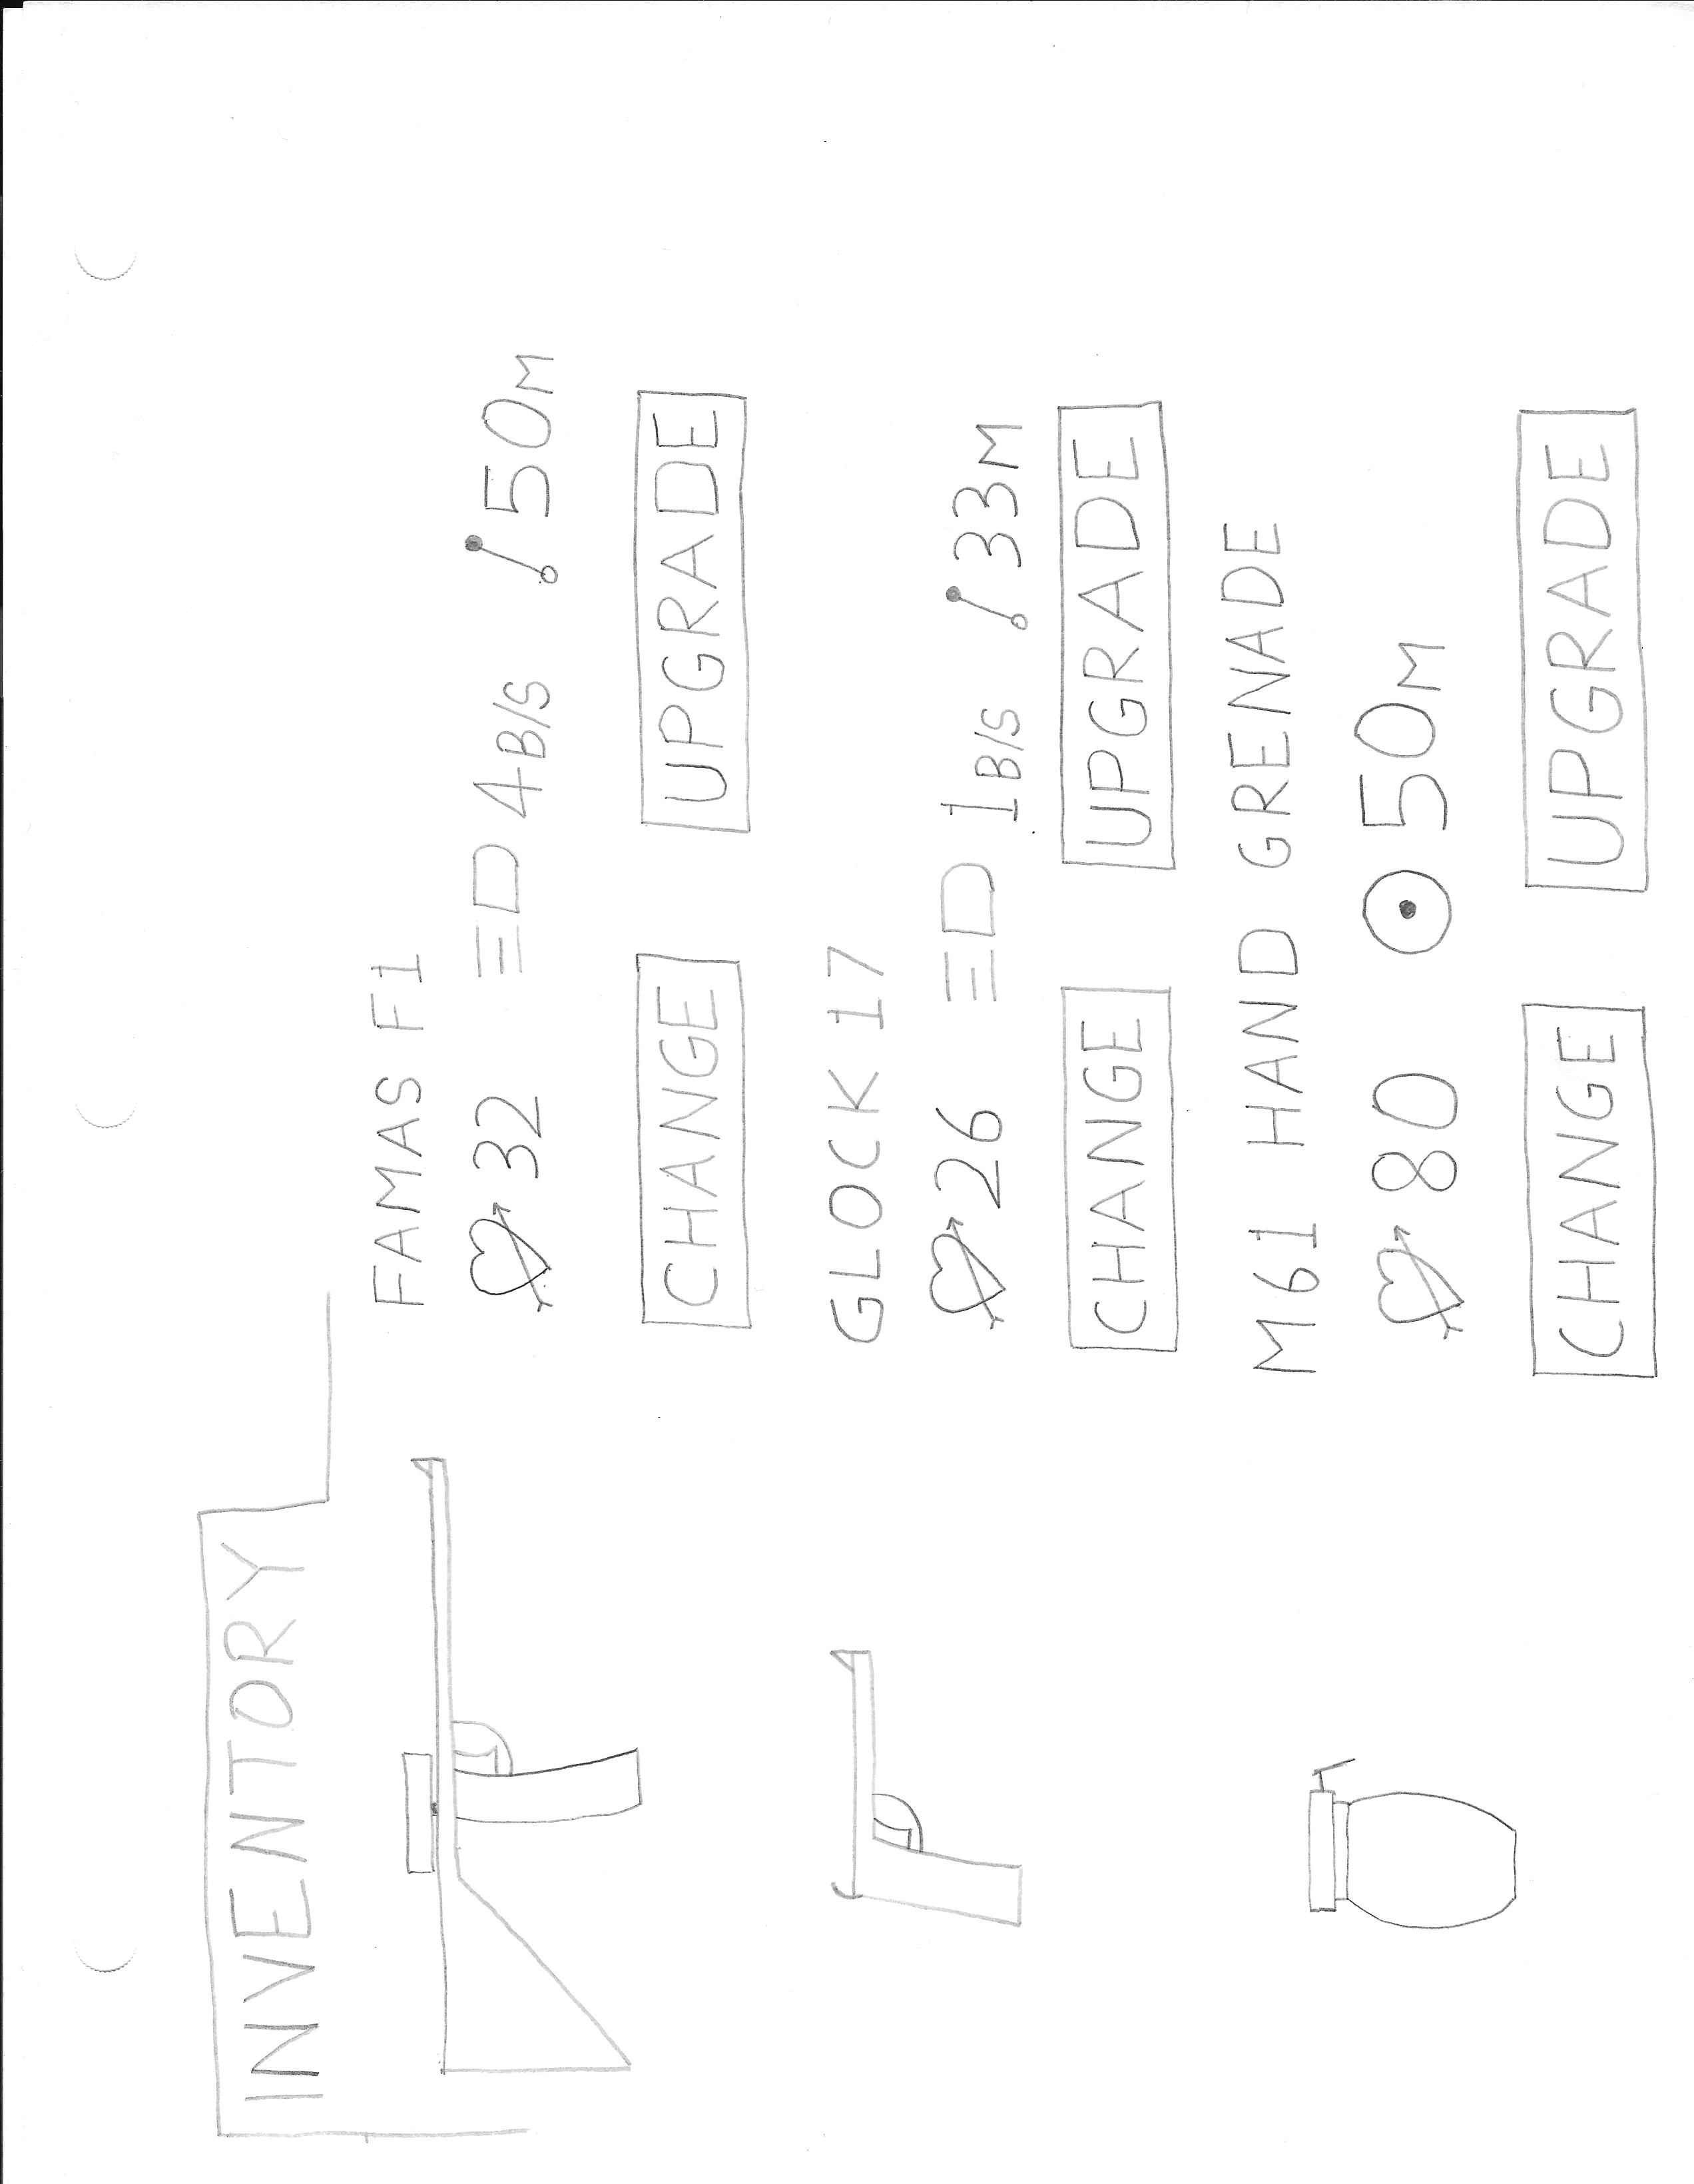 INVENTORY
FAMAS F1
32 4B/S 50M
CHANGE UPGRADE
GLOCK 17
26 1B/S 33M
CHANGE UPGRADE
M61 HAND GRENADE
80 50M
CHANGE UPGRADE